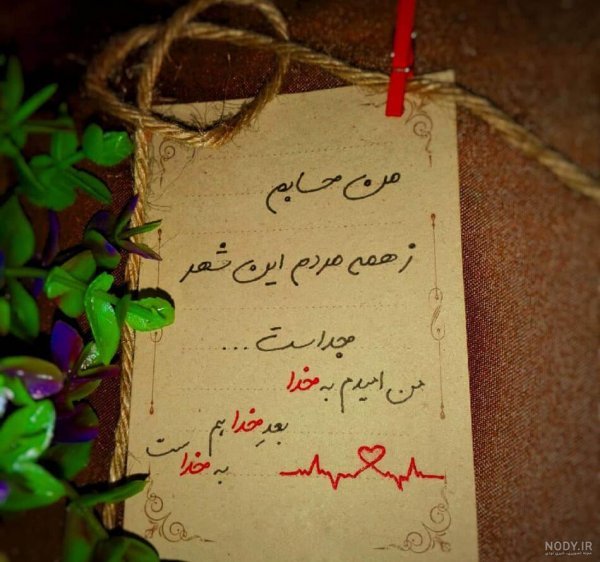 من حسابم
ز همه مردم این شهر
جداست ...
من امیدم به خدا
بعدِ خدا هم
به خداست
NODY.IR